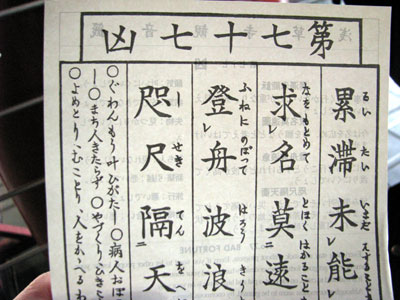 第七十七凶
累滞未能レ
るい たい いまだ
求レ名莫遠二
なをもとめて とほくはかること
登レ舟波浪
ふねにのぼって はろう きう
咫尺隔二天
しせき てんをへ
○ぐわんもう叶ひがたし○病人おぼ
○まち人きたらず○やづくりひきこ
○よめとり、むことり、人をかゝへるわ
BAD FORTUNE